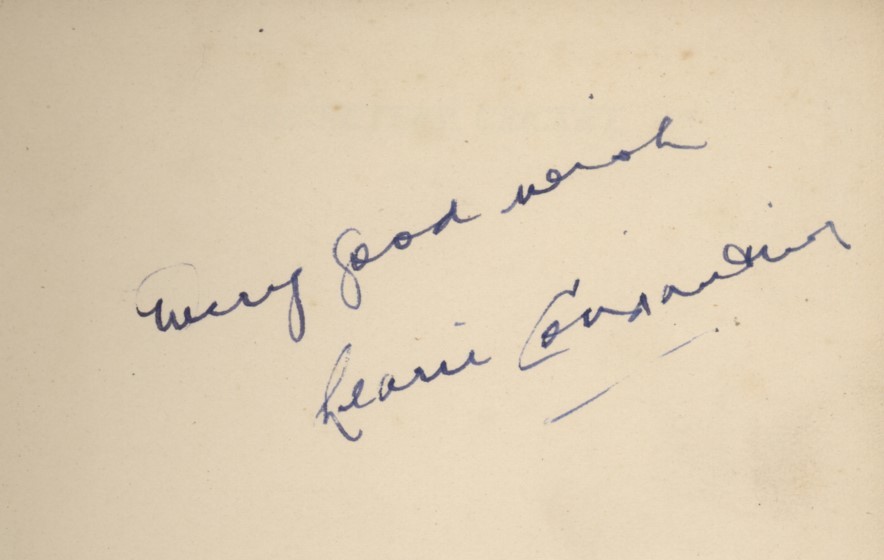 Every good wish
Learie Constantine